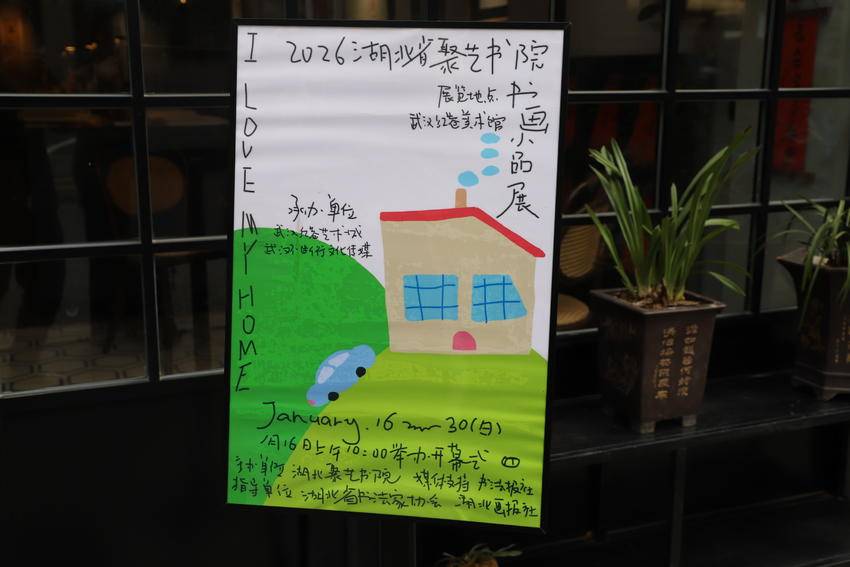 I LOVE MY HOME
2026湖北省聚艺书院
书画小品展
展览地点
武汉红巷美术馆
承办单位
武汉红巷艺术城
January.16 — 30(日)
1月16日上午10:00举办开幕式
主办单位 湖北聚艺书院 媒体支持 书法报社
指导单位 湖北省书法家协会 湖北画报社